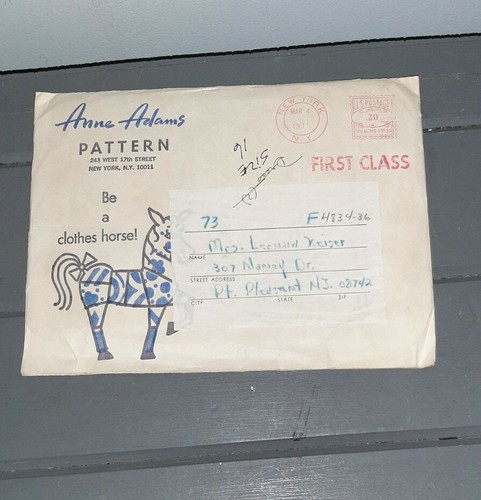 Anne Adams
PATTERN
243 WEST 17th STREET
NEW YORK, N.Y. 10011
Be
a
clothes horse!
NEW YORK
MAR
N.Y.
U.S. POSTAGE
.20
FIRST CLASS
SIZE
16
73 F4834-36
Mrs. Leonard Keiser
NAME
307 Manley Dr.
STREET ADDRESS
Pt. Pleasant NJ. 08742
CITY STATE ZIP